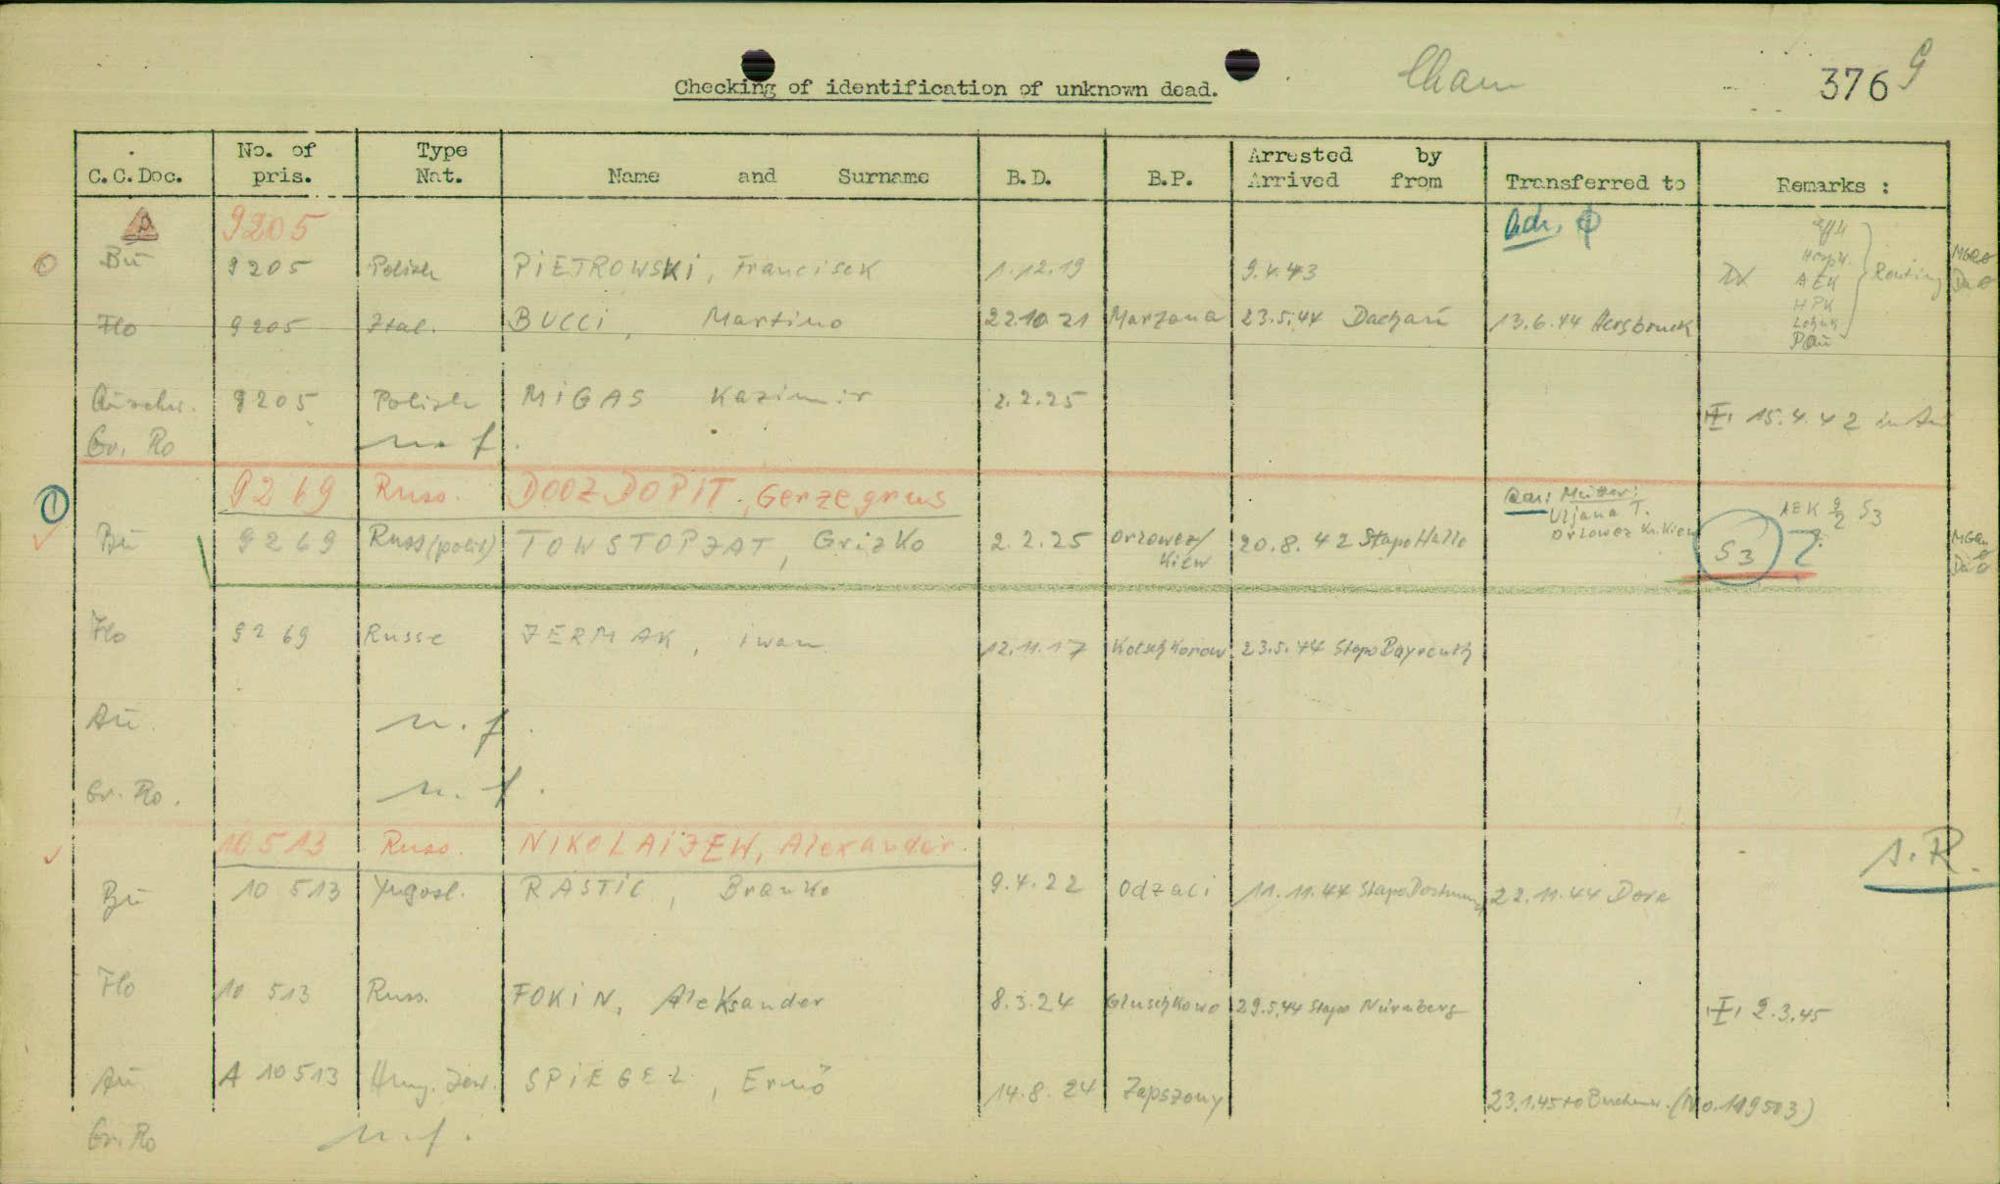 Cham
376 9
Checking of identification of unknown dead.
C.C.Doc. No. of pris. Type Nat. Name and Surname B.D. B.P. Arrested by Arrived from Transferred to Remarks :
9205
Bu 9205 Polish PIETROWSKI, Francisek 1.12.19 9.4.43
Hospk.
AEK
HPK
Routing
MGRO
Flo 9205 Ital. BUCCI, Martino 22.10 21 Marzana 23.5.44 Dachau 13.6.44 Hersbruck
Auschw. 9205 Polish MIGAS Kazimir 2.2.25 15.4.42 in Au
Gr. Ro n. f.
9269 Russ. DOOZDOPIT, Gerzegrus
Mutter:
Uljana T.
Orlowez Kr. Kiew
AEK 9/2 S3
Bu 9269 Russ (polit) TOWSTOPJAT, Grizko 2.2.25 Orlowez/Kiew 20.8.42 Stapo Halle S3 ?
Flo 9269 Russe JERMAK, iwan 12.11.17 Kotschkorow 23.5.44 Stapo Bayreuth
Au. n. f.
Gr. Ro. n. f.
10513 Russ. NIKOLAIJEW, Alexander.
A.R.
Bu 10 513 Yugosl. RASTIC, Branko 9.4.22 Odzaci 11.11.44 Stapo Dortmund 22.11.44 Dora
Flo 10 513 Russ. FOKIN, Aleksander 8.3.24 Gluschkowo 29.5.44 Stapo Nürnberg 2.3.45
Au A 10513 Hung. Jew. SPIEGEL, Ernö 14.8.24 Zapszony 23.1.45 to Buchenw. (No. 119503)
Gr. Ro n. f.